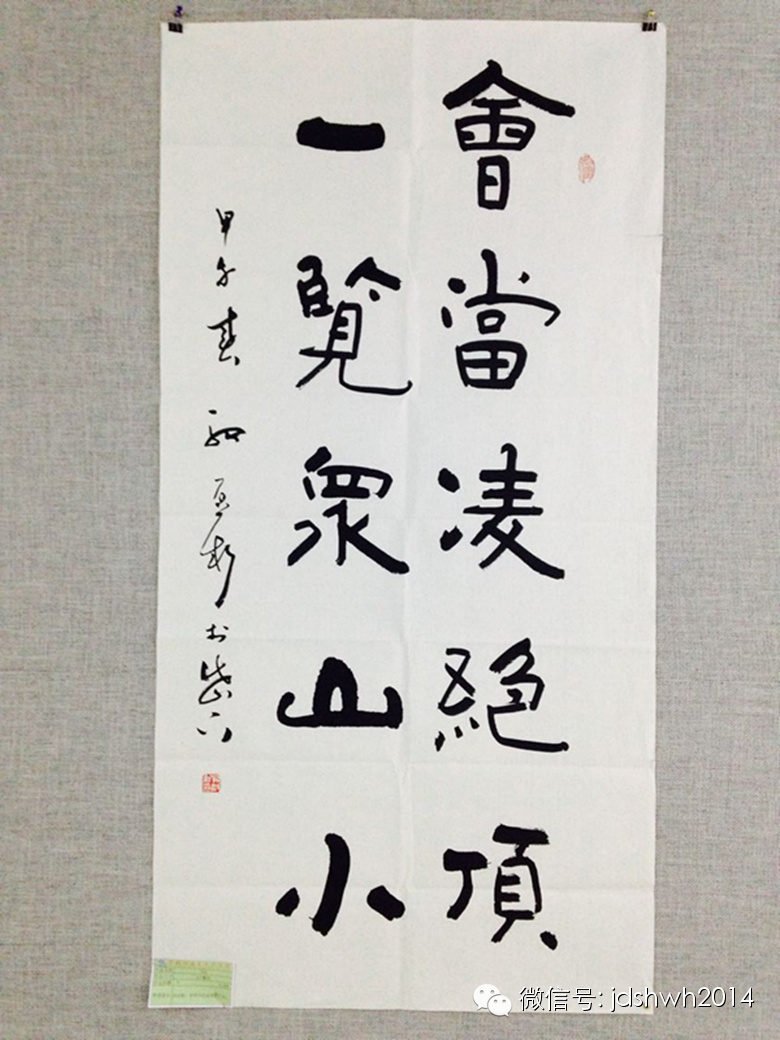 會當凌絕頂
一覽眾山小
甲午春
於岱下
微信号: jdshwh2014